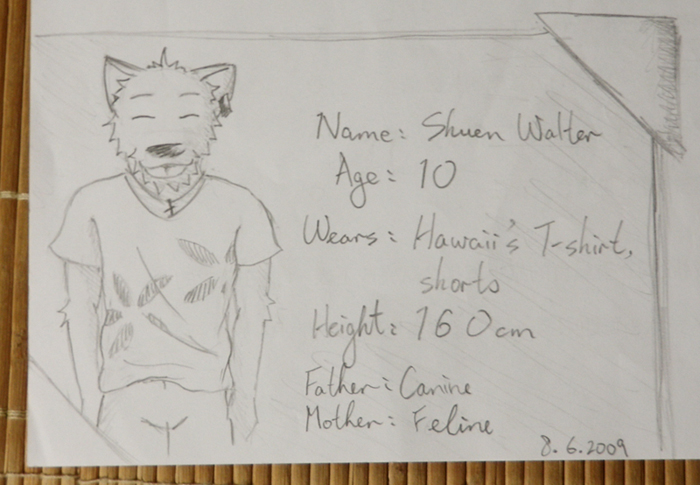 Name: Shuen Walter
Age: 10
Wears: Hawaii's T-shirt,
shorts
Height: 160cm
Father: Canine
Mother: Feline
8.6.2009